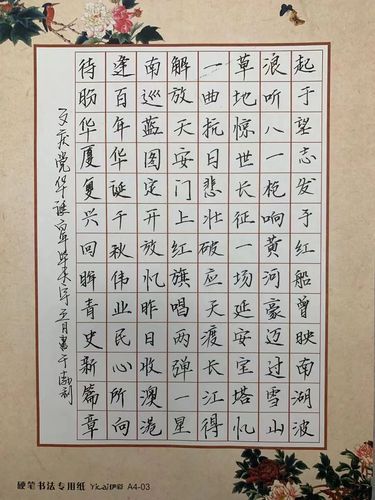 起于望志发于红船曾映南湖波
浪听八一枪响黄河豪迈过雪山
草地惊世长征一场延安宝塔忆
一曲抗日悲壮破应天渡长江得
解放天安门上红旗唱两弹一星
南巡蓝图定开放忆昨日收澳港
逢百年华诞千秋伟业民心所向
待盼华厦复兴回眸青史新篇章
庆党华诞五月書于
硬笔书法专用纸 Yicai伊彩 A4-03